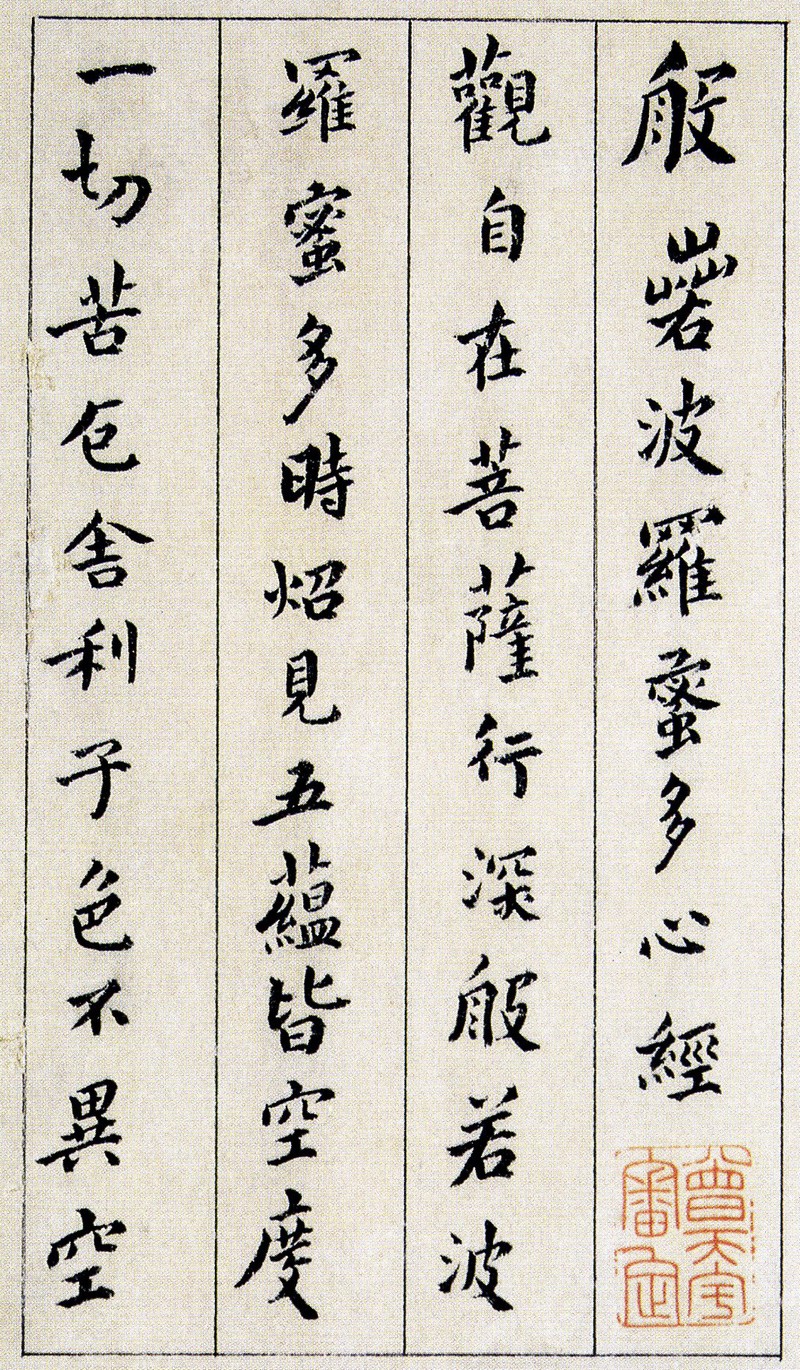 般若波羅蜜多心經
觀自在菩薩行深般若波
羅蜜多時炤見五蘊皆空度
一切苦厄舍利子色不異空